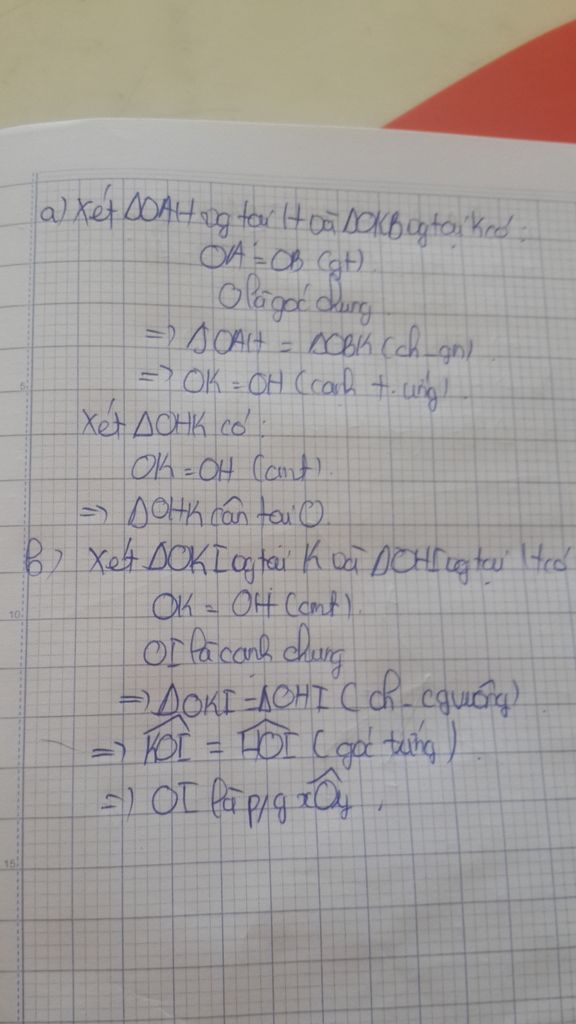 a) Xét ΔOAH vg tại H và ΔOKB vg tại K có:
OA = OB (gt)
O là góc chung
=> ΔOAH = ΔOBK (ch-gn)
=> OK = OH (cạnh t.ứng)
Xét ΔOHK có:
OK = OH (cmt)
=> ΔOHK cân tại O.
b) Xét ΔOKI vg tại K và ΔOHI vg tại H có
OK = OH (cmt)
OI là cạnh chung
=> ΔOKI = ΔOHI (ch-cgvuông)
=> KOI = HOI (góc tứng)
=> OI là p/g xOy.
5
10
15